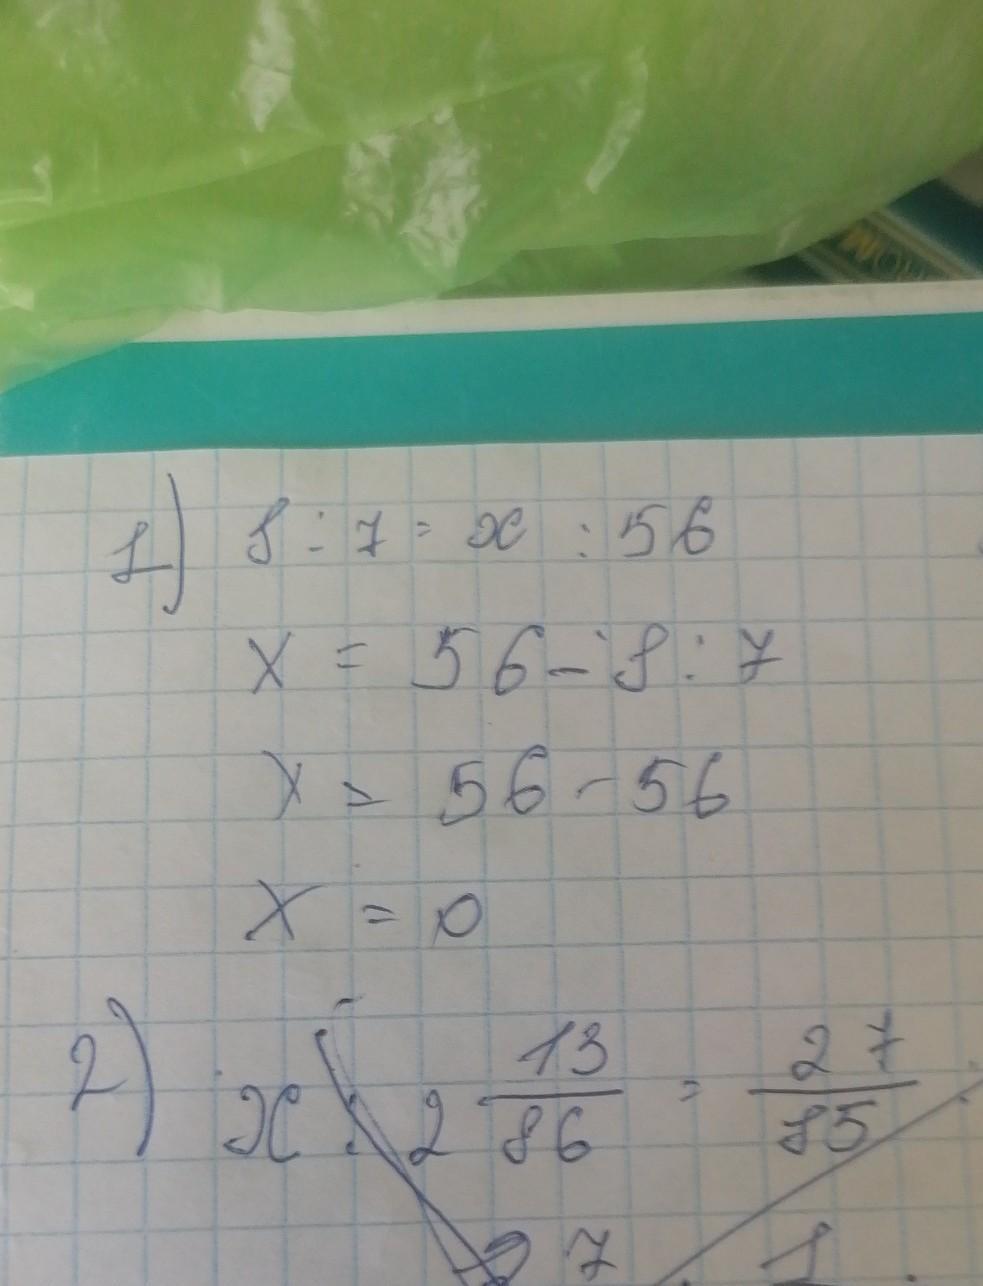 1) 8 : 7 = x : 56
X = 56 - 8 : 7
X = 56 - 56
X = 0
2) x : 2 13/86 = 27/85